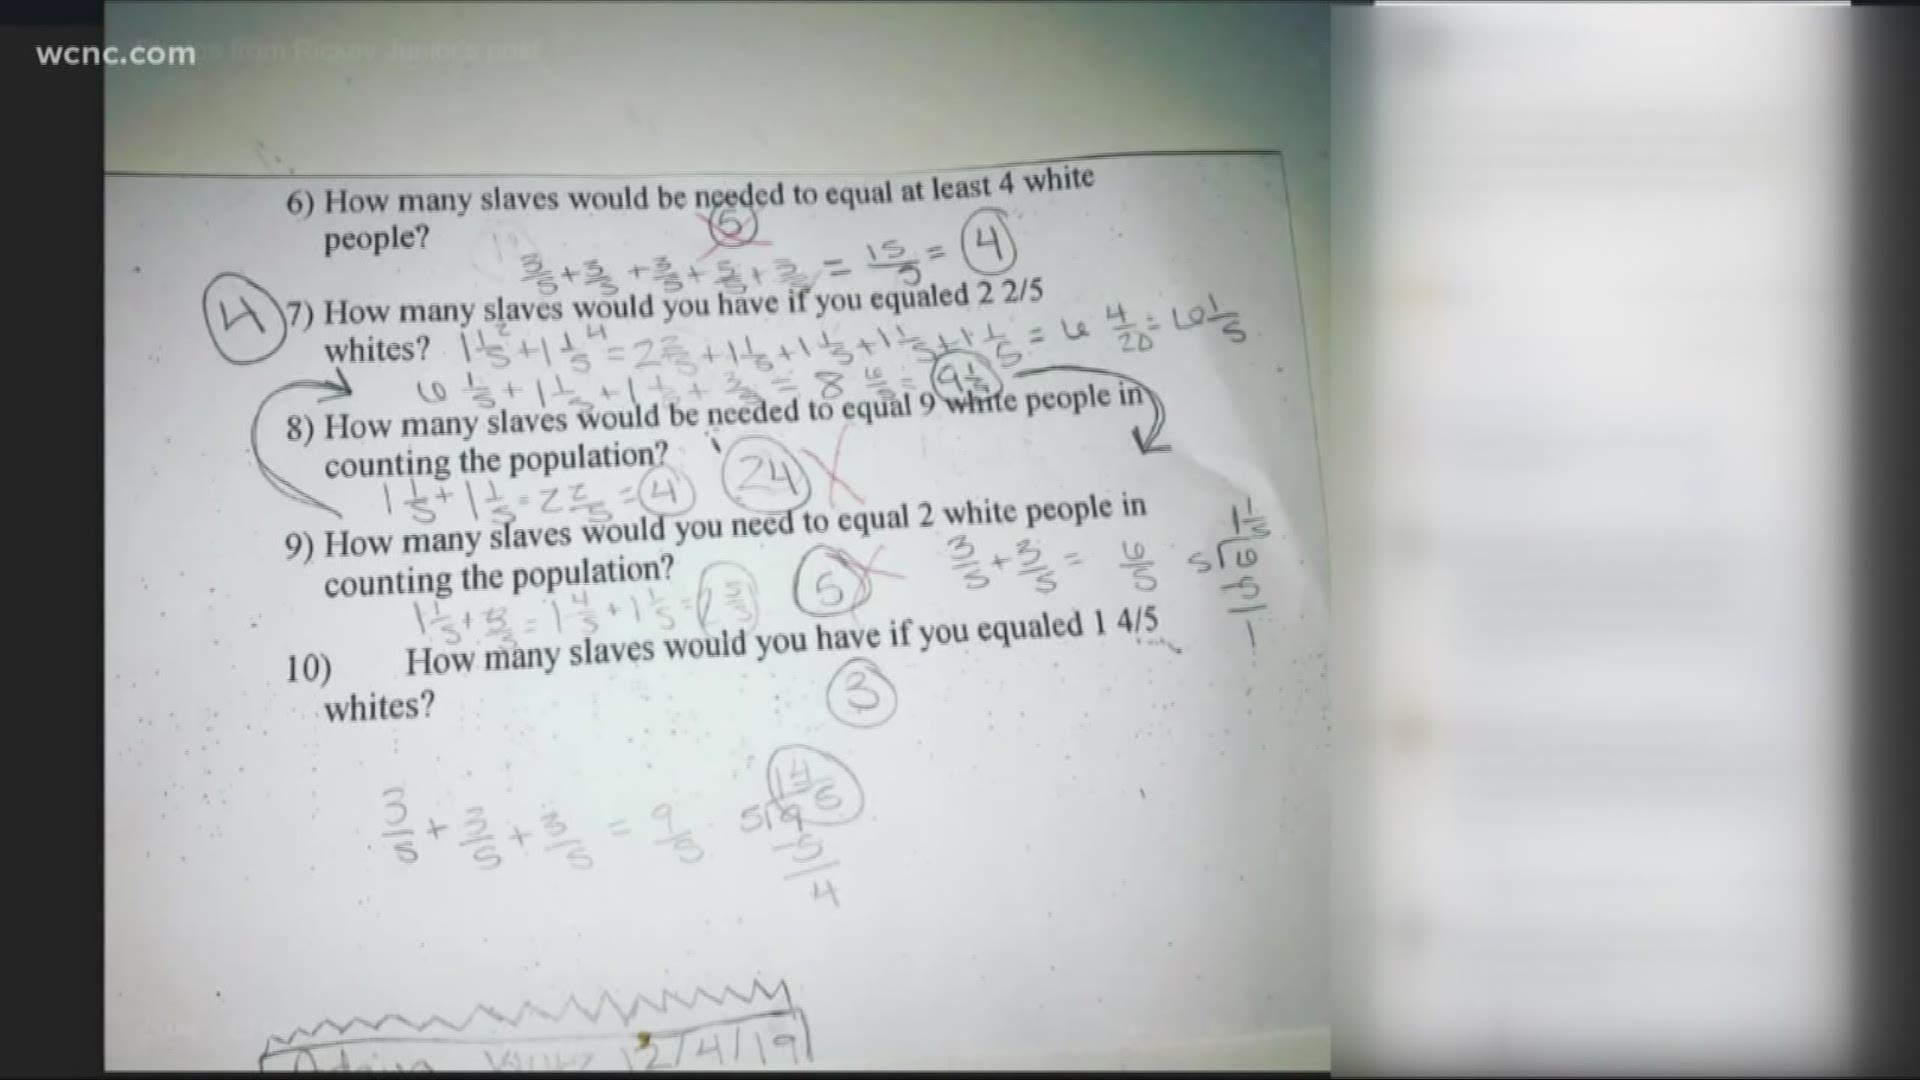 wcnc.com
6) How many slaves would be needed to equal at least 4 white
people?
5
3/5 + 3/5 + 3/5 + 5/5 + 3 = 15/5 = 4
4
7) How many slaves would you have if you equaled 2 2/5
whites? 1 1/5 + 1 1/5 = 2 2/5 + 1 1/5 + 1 1/5 + 1 1/5 + 1 1/5 = 6 4/20 = 6 1/5
6 1/5 + 1 1/5 + 1 = 8 = 9 1/5
8) How many slaves would be needed to equal 9 white people in
counting the population?
24
1 1/5 + 1 1/5 = 2 2/5 = 4
9) How many slaves would you need to equal 2 white people in
counting the population?
5
3/5 + 3/5 = 6/5
1 1/5
5 6
-5
1
1 1/5 + = 1 4/5 + 1 1/5 =
10) How many slaves would you have if you equaled 1 4/5
whites?
3
3/5 + 3/5 + 3/5 = 9/5
1 4/5
5 9
-5
4
12/4/19